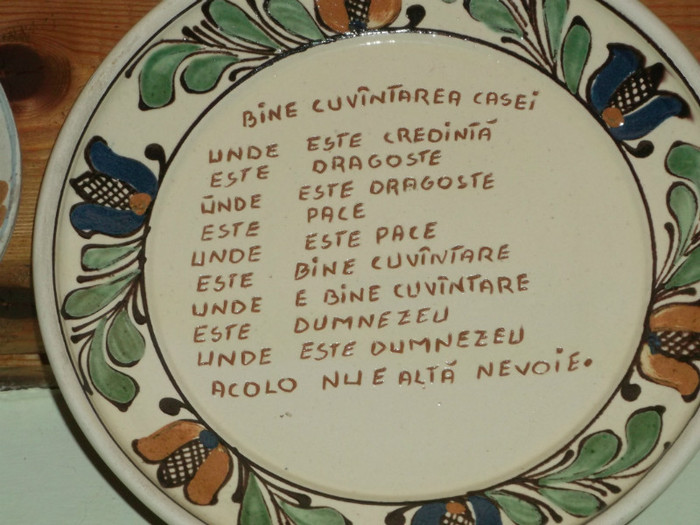 BINE CUVÎNTAREA CASEI
UNDE ESTE CREDINTĂ
ESTE DRAGOSTE
UNDE ESTE DRAGOSTE
ESTE PACE
UNDE ESTE PACE
ESTE BINE CUVÎNTARE
UNDE E BINE CUVÎNTARE
ESTE DUMNEZEU
UNDE ESTE DUMNEZEU
ACOLO NU E ALTĂ NEVOIE.